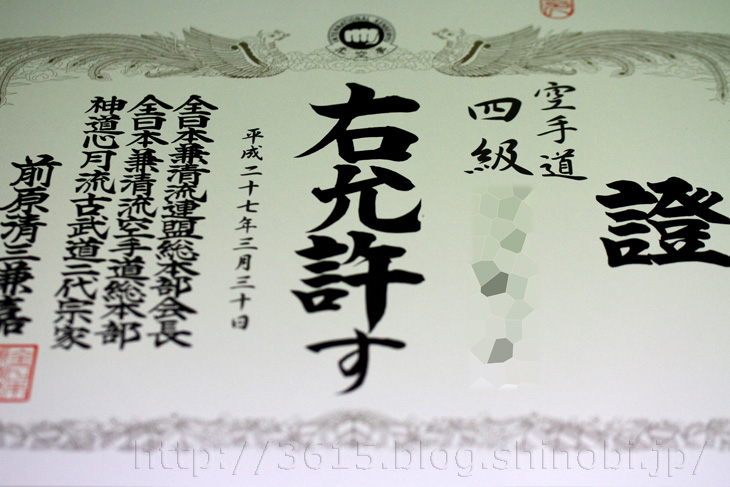 證
空手道
四級
右允許す
平成二十七年三月三十日
全日本兼清流連盟総本部会長
全日本兼清流空手道総本部
神道心月流古武道二代宗家
前原清三兼嘉
http://3615.blog.shinobi.jp/